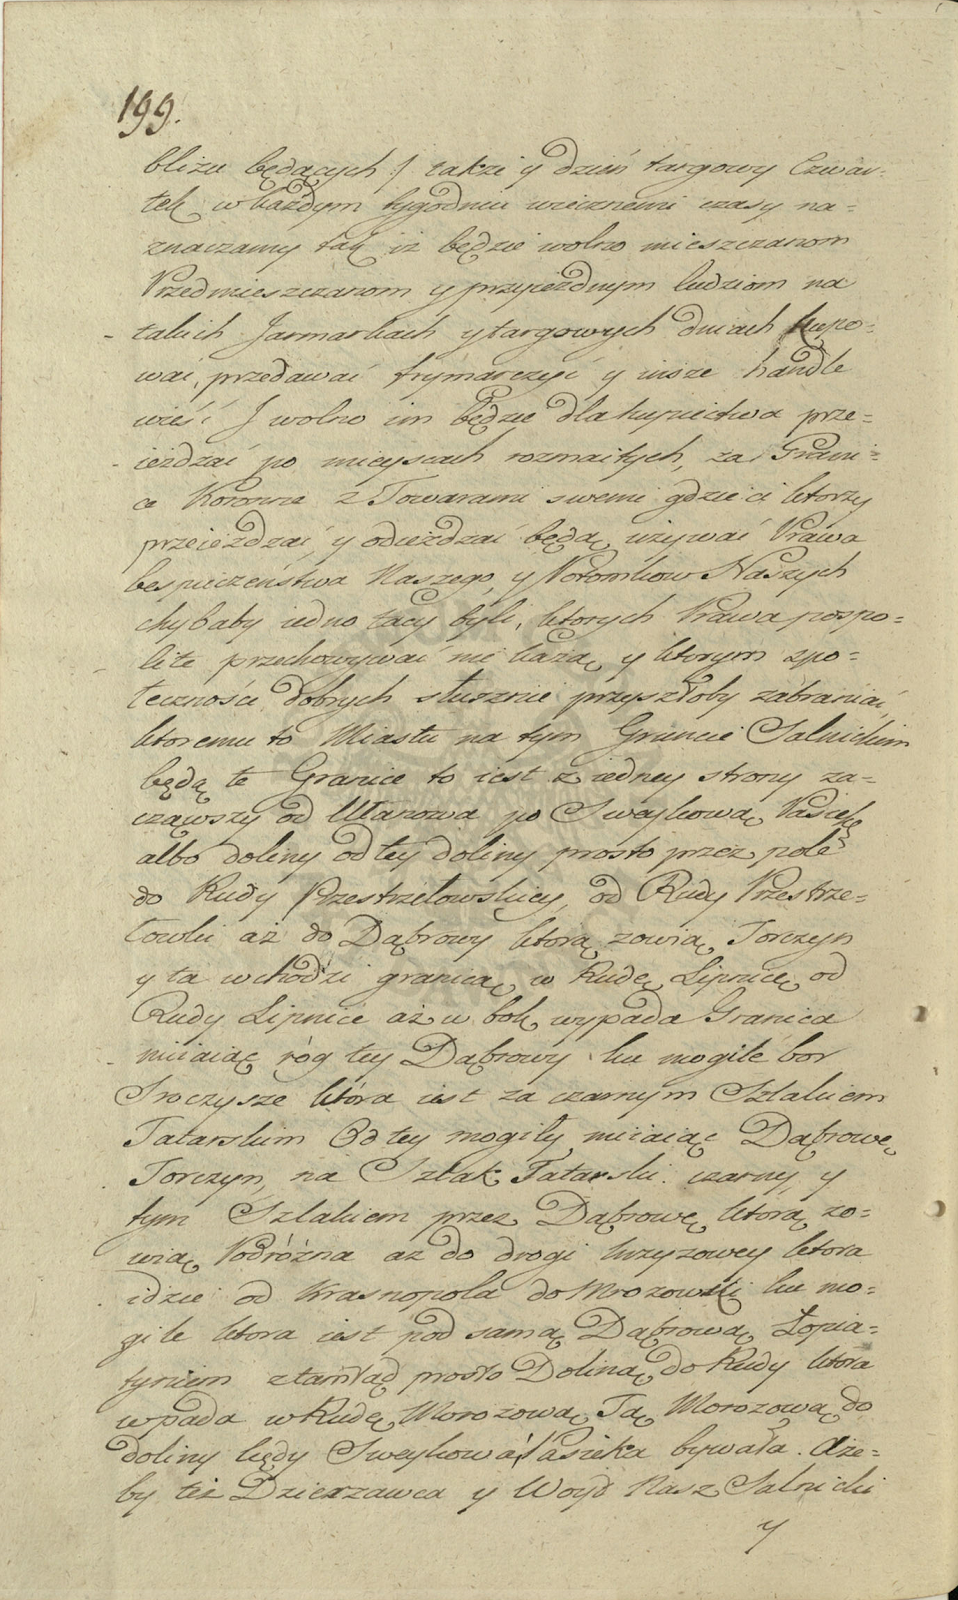 199.
bliżu będących / także y dzień targowy Czwar-
tek w każdym tygodniu wiecznemi czasy na-
znaczamy tak iż będzie wolno mieszczanom
Przedmieszczanom y przyieżdnym ludziom na
takich Jarmarkach y targowych dniach kupo-
wać, przedawać frymarczyć y insze handle
wieść J wolno im będzie dla kupiectwa prze-
ieżdżać po mieyscach rozmaitych, za Grani-
ce Koronne z Towarami swemi gdzie ci ktorzy
przeieżdzać, y odieżdzać będą, używać Prawa
bespieczeństwa Naszego, y Potomkow Naszych
chybaby iedno tacy byli, ktorych Prawa pospo-
lite przechowywać nie każą, y ktorym spo-
łeczności dobrych słusznie przyszłoby zabraniać,
ktoremu to Miastu na tym Gruncie Salnickim
będą te Granice to iest z iedney strony za-
cząwszy od Ułanowa po Sweykową Pasiekę
albo doliny od tey doliny prosto przez pole
do Rudy Przestrzełowskiey, od Rudy Przestrze-
łowki aż do Dąbrowy ktorą zowią Torczyn
y ta wchodzi granica, w Rudę Lipnicę, od
Rudy Lipnice aż w bok wypada Granica
miiaiąc róg tey Dąbrowy ku mogile bor
Sroczysze która iest za czarnym Szlakiem
Tatarskim Od tey mogiły, miiaiąc Dąbrowę
Torczyn, na Szlak Tatarski czarny, y
tym Szlakiem przez Dąbrowę, ktorą zo-
wią Podróżna aż do drogi krzyzowey ktora
idzie od Krasnopola do Mrozowki ku mo-
gile ktora iest pod samą Dąbrową Łopia-
tyniem ztamtąd prosto Doliną do Rudy ktora
wpada w Rudę, Morozową, Tą Morozową do
doliny kędy Sweykowa Pasieka bywała. Aże-
by też Dzierzawca y Woyd Nasz Salnicki
y